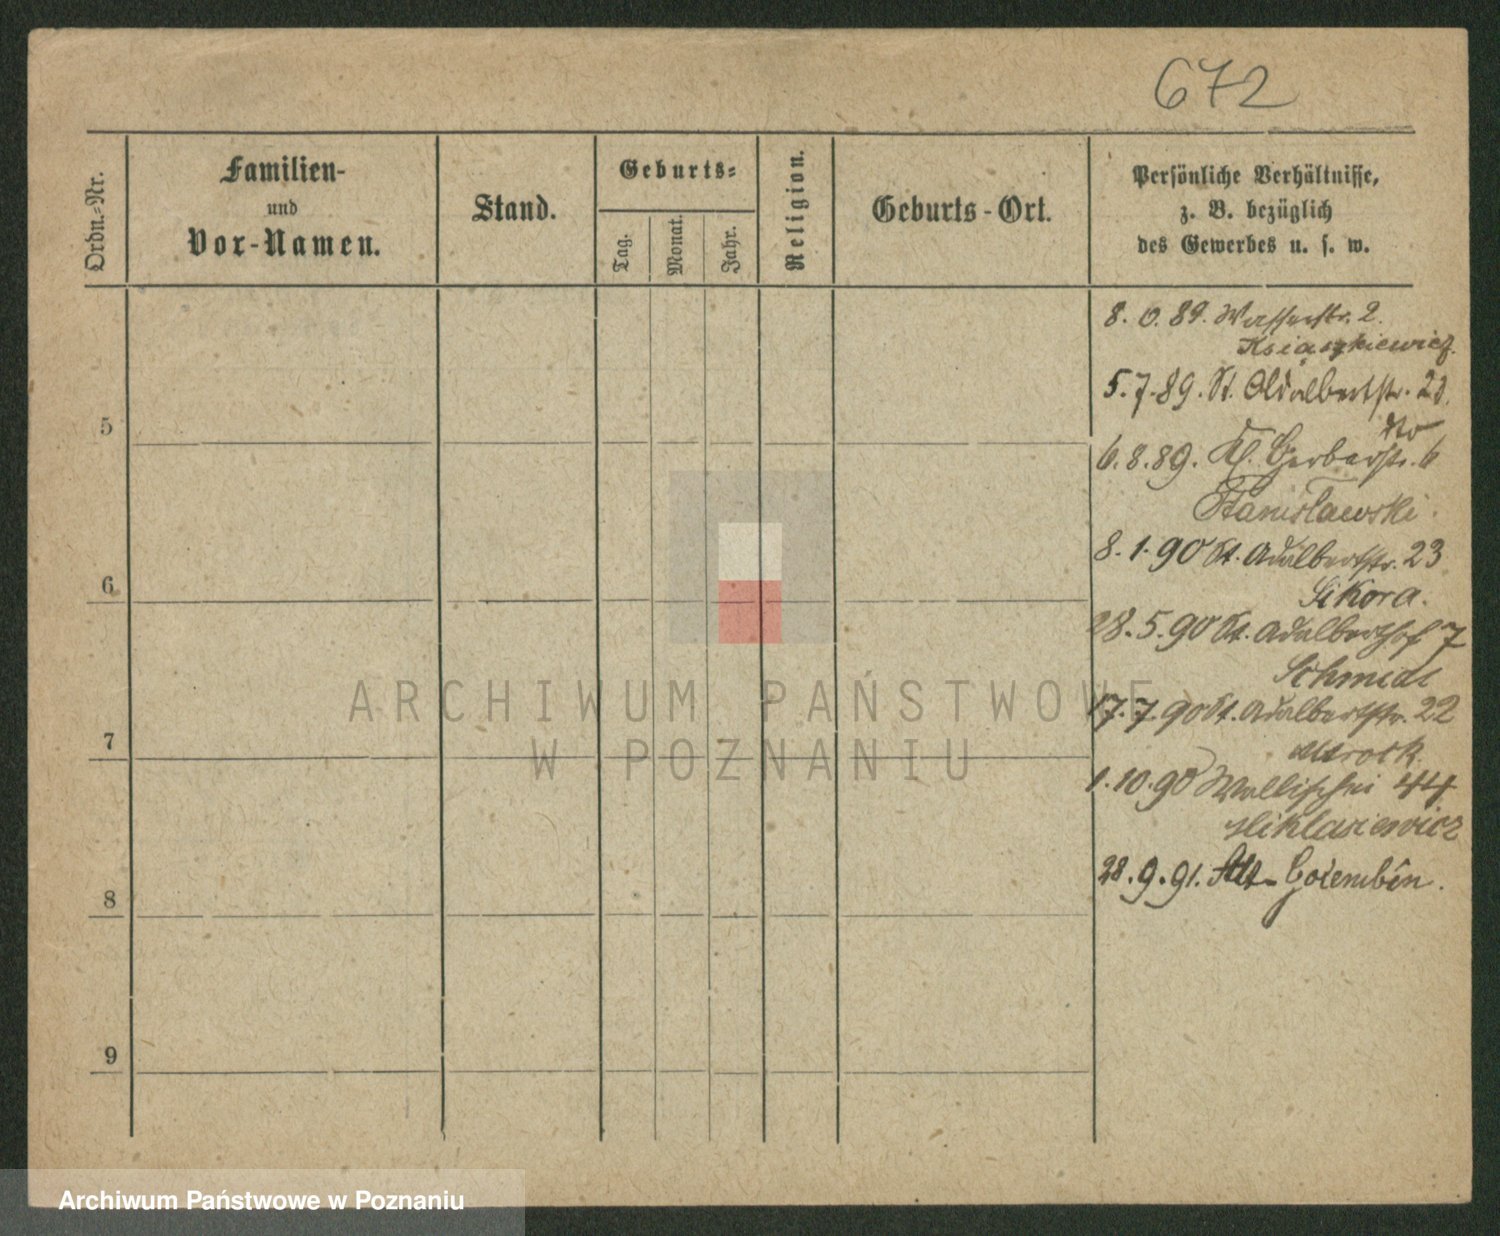 672
Ordn.-Nr.
Familien-
und
Vor-Namen.
Stand.
Geburts-
Tag.
Monat.
Jahr.
Religion.
Geburts-Ort.
Persönliche Verhältnisse,
z. B. bezüglich
des Gewerbes u. s. w.
8. 0. 89. Wasserstr. 2.
Książkiewicz.
5. 7. 89. St. Adalbertstr. 23.
dto
5
6. 8. 89. Kl. Gerberstr. 6
Stanisławski.
8. 1. 90 St. Adalbertstr. 23
6
Sikora.
28. 5. 90 St. Adalberthof 7
Schmidt
17. 7. 90 St. Adalbertstr. 22
7
Mrock.
1. 10. 90 Wallischei 44
Miklasiewicz
28. 9. 91. Alt-Goiembin.
8
9
ARCHIWUM PAŃSTWOWE
W POZNANIU
Archiwum Państwowe w Poznaniu